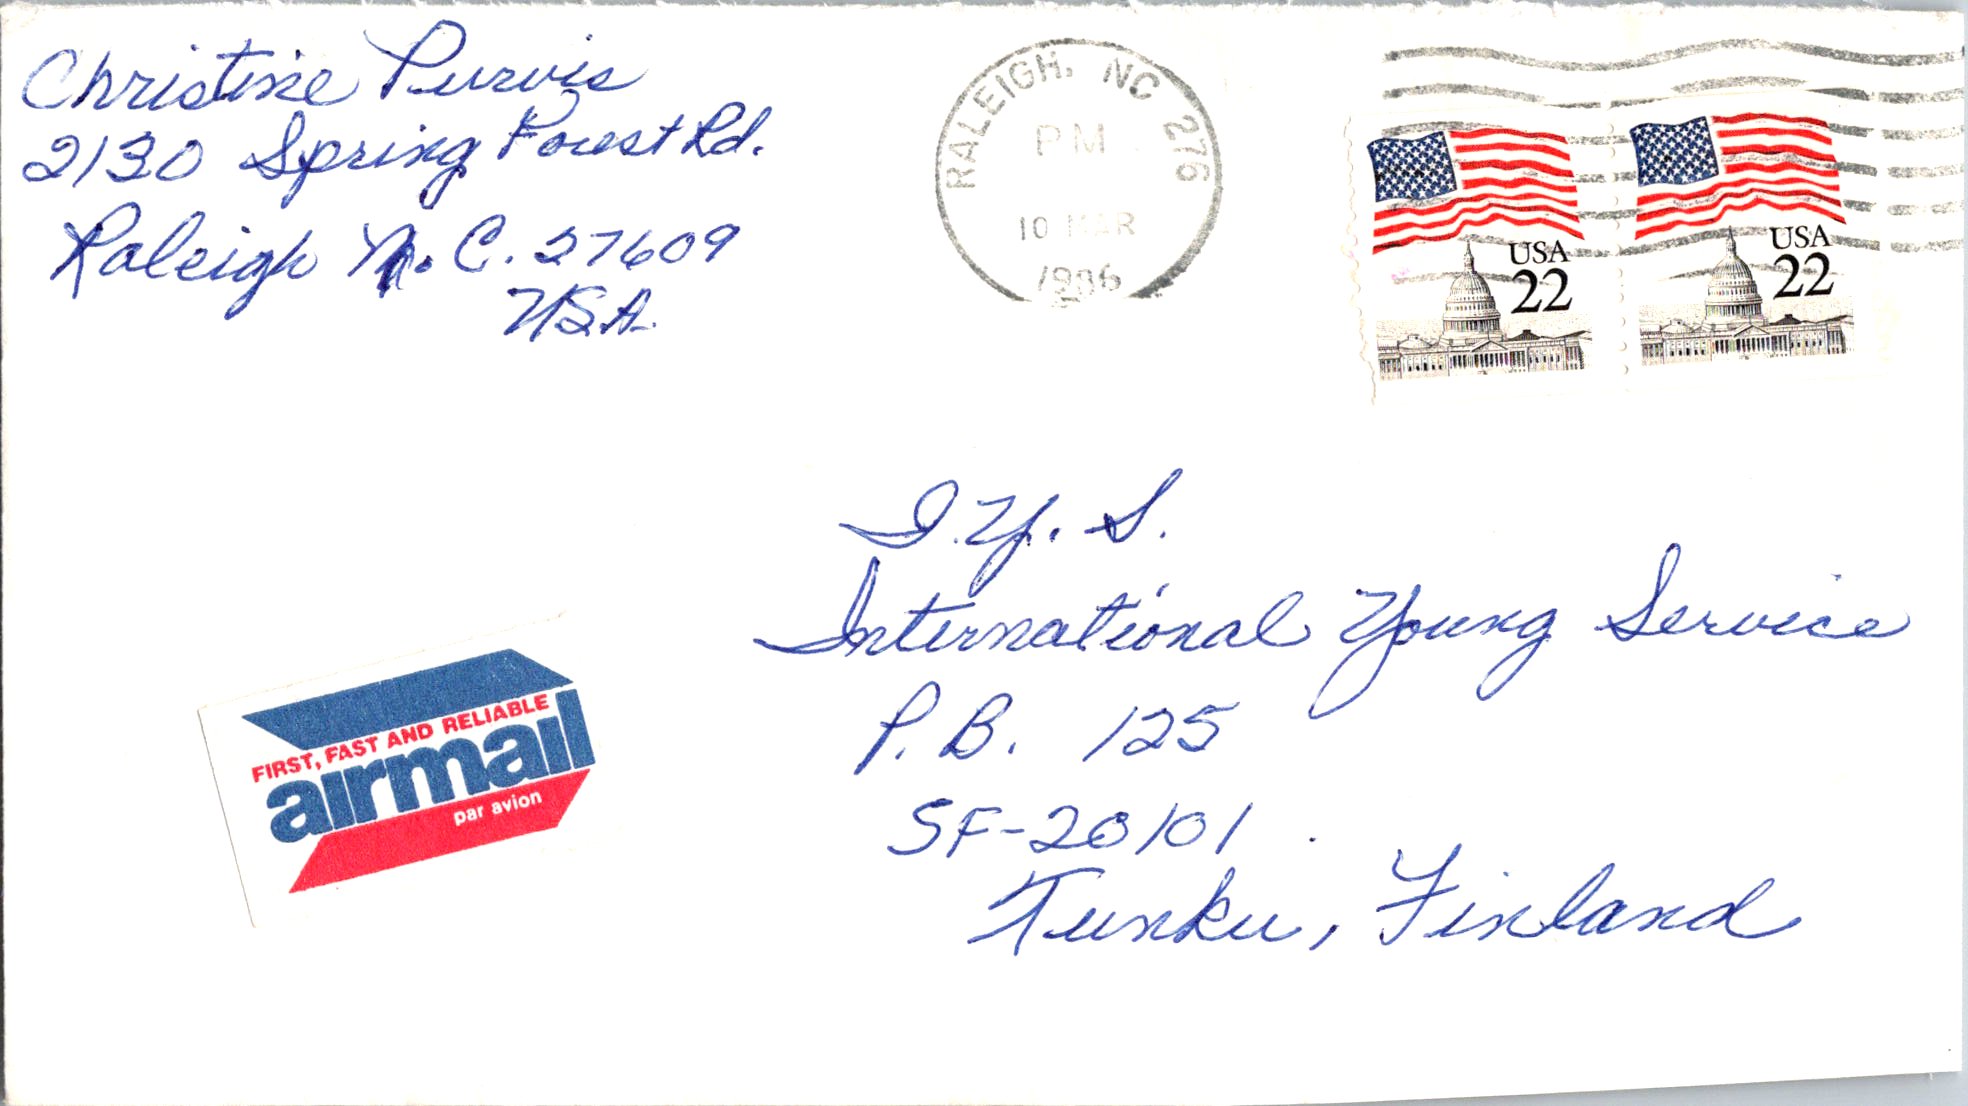 Christine Purvis
2130 Spring Forest Rd.
Raleigh N. C. 27609
USA.
RALEIGH, NC 276
PM
10 MAR
1986
USA
22
USA
22
I.Y. S.
International Young Service
P. B. 125
SF-20101
Turku, Finland
FIRST, FAST AND RELIABLE
airmail
par avion